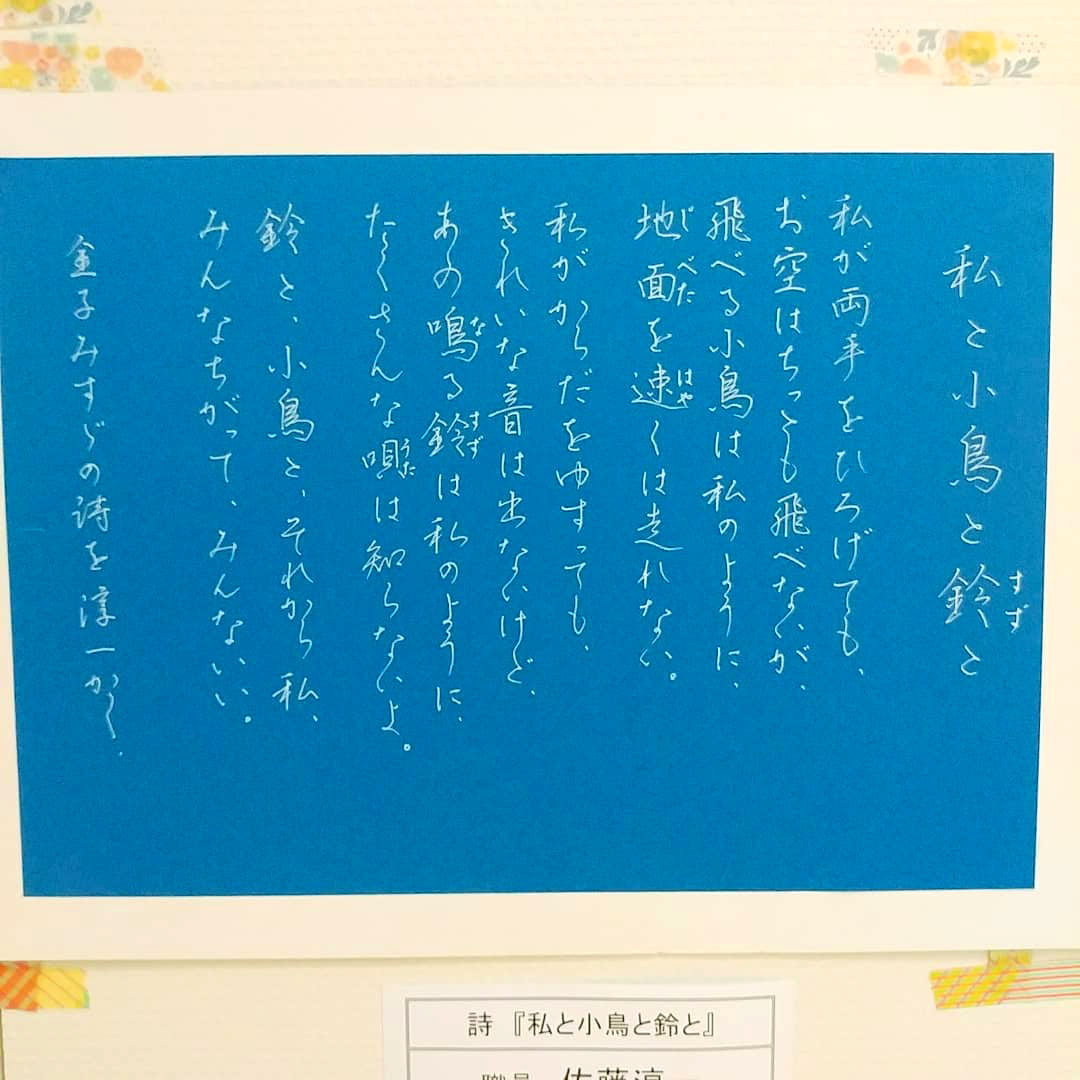 私と小鳥と鈴と
すず
私が両手をひろげても、
お空はちっとも飛べないが、
飛べる小鳥は私のように、
地面を速くは走れない。
じべた
はや
私がからだをゆすっても、
きれいな音は出ないけど、
あの鳴る鈴は私のように、
な
すず
たくさんな唄は知らないよ。
うた
鈴と、小鳥と、それから私、
みんなちがって、みんないい。
金子みすゞの詩を淳一かく.
詩『私と小鳥と鈴と』
職員 佐藤淳一